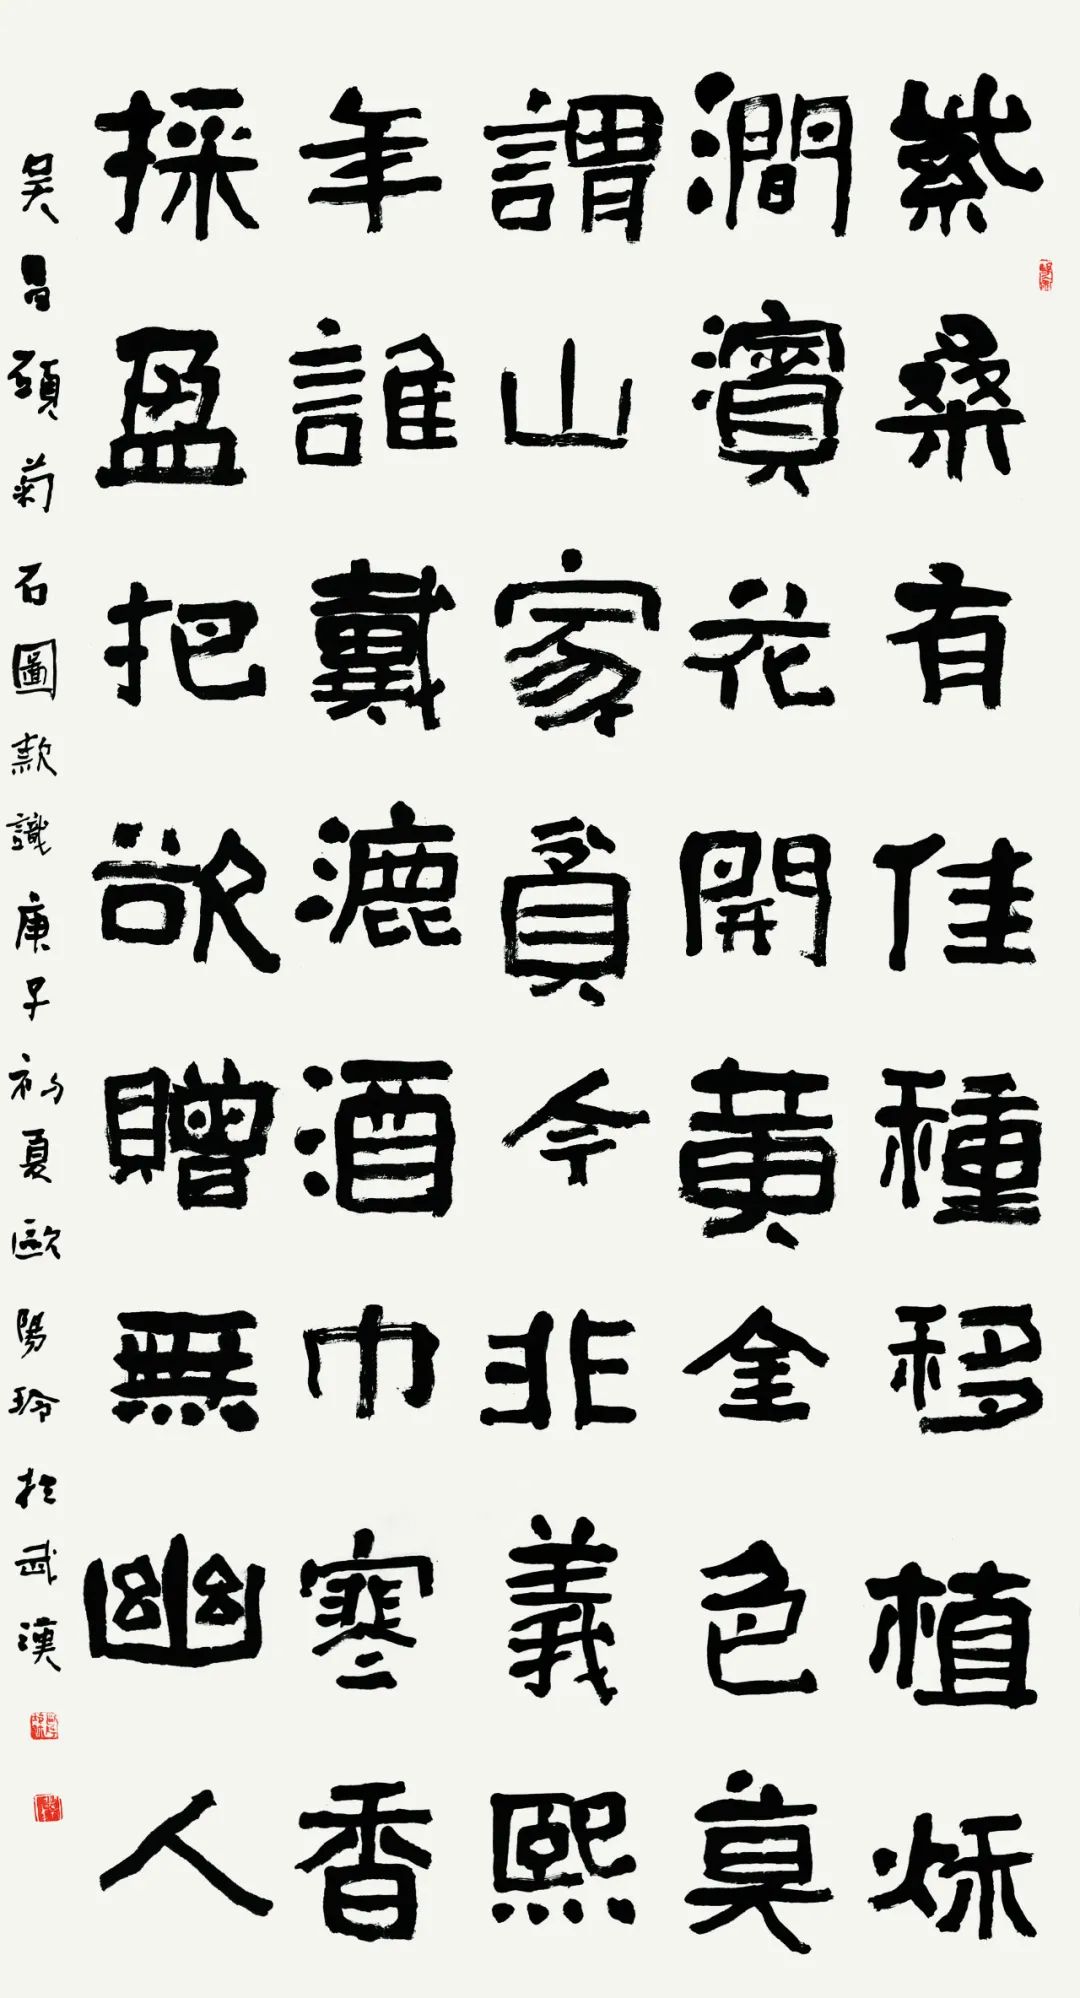 紫桑有佳種移植秌
澗濱花開黄金色莫
謂山家貧今非義熙
年誰戴漉酒巾寒香
採盈把欲贈無幽人
吴昌碩菊石圖款識庚子初夏歐陽玲於武漢